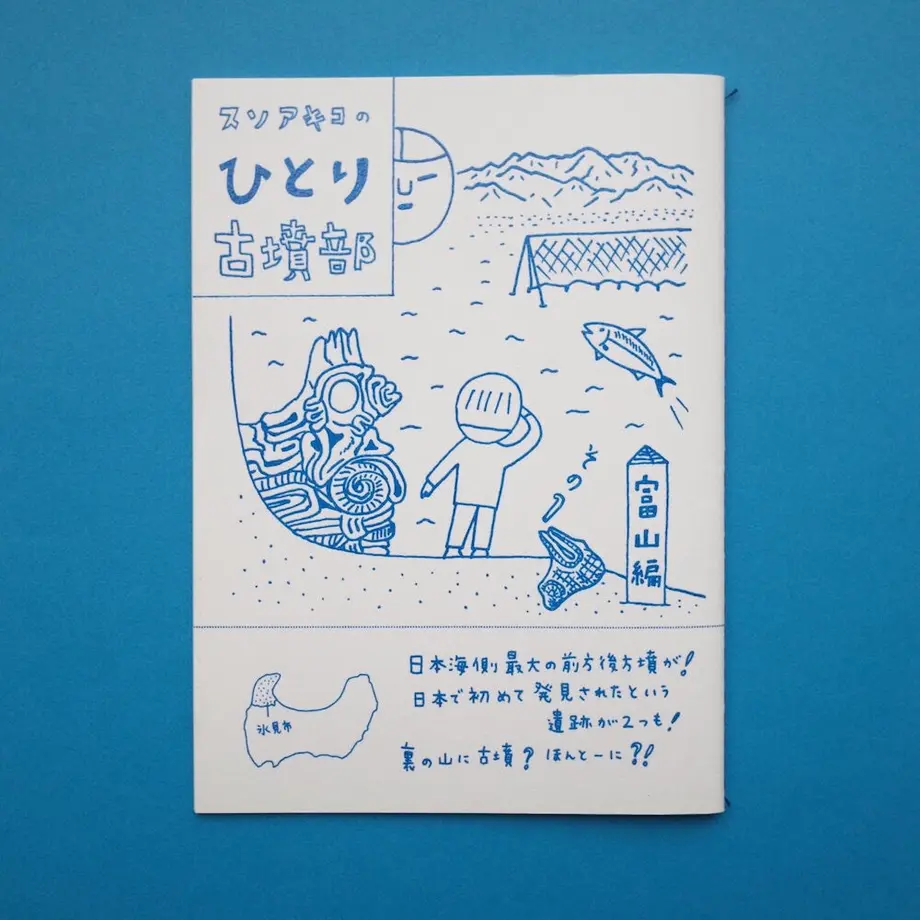 スソアキコの
ひとり
古墳部
その1
富山編
氷見市
日本海側最大の前方後方墳が!
日本で初めて発見されたという
遺跡が2つも!
裏の山に古墳?ほんとーに?!